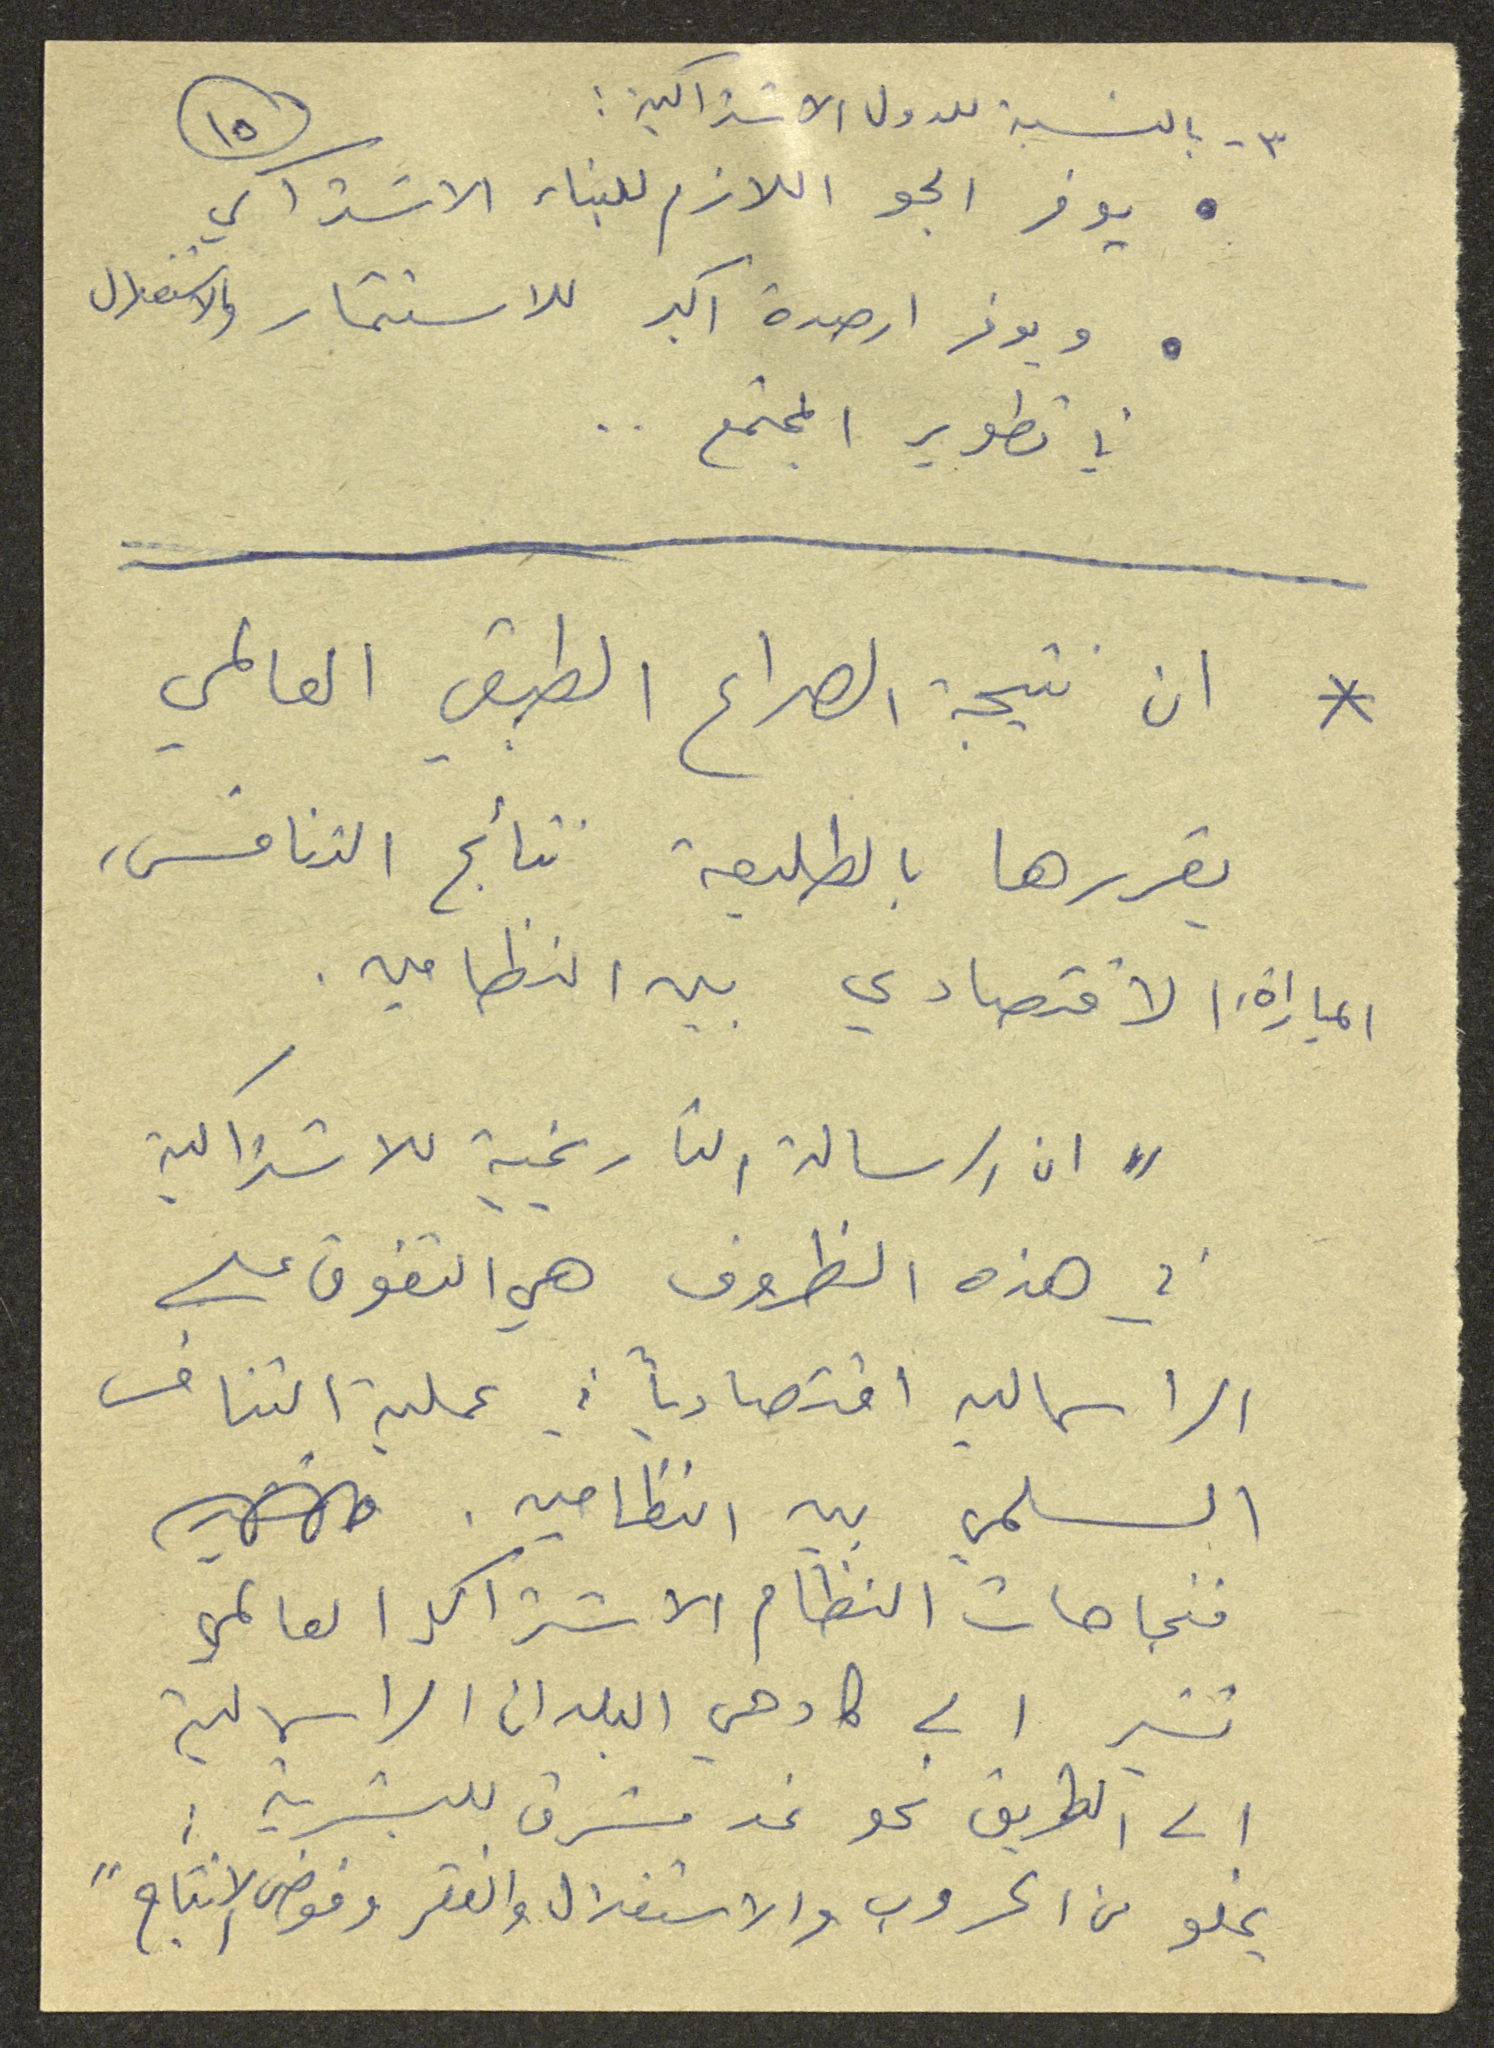 ١٥
٣- بالنسبة للدول الاشتراكية :
• يوفر الجو اللازم للبناء الاشتراكي
• ويوفر ارصدة اكبر للاستثمار والاستغلال
في تطوير المجتمع ..
* ان نتيجة الصراع الطبقي العالمي
يقررها بالطليعة نتائج التنافس،
المباراة، الاقتصادي بين النظامين .
" ان الرسالة التاريخية للاشتراكية
في هذه الظروف هي التفوق على
الراسمالية اقتصادياً في عملية التنافس
السلمي بين النظامين .
فنجاحات النظام الاشتراكي العالمي
تشير الى كادحي البلدان الراسمالية
الى الطريق نحو غد مشرق للبشرية ;
يخلو من الحروب والاستغلال والفقر وفوضى الانتاج "